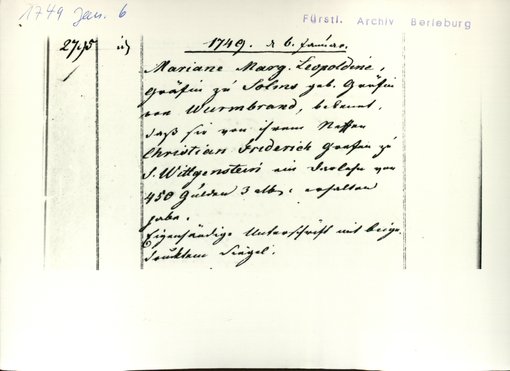 1749 Jan. 6
Fürstl. Archiv Berleburg
2795
1749. d 6. Januar.
Mariane Marg. Leopoldine,
Gräfin zu Solms geb. Gräfin
von Wurmbrand, bekennt,
daß sie von ihrem Neffen
Christian Friderich Grafen zu
S. Wittgenstein ein Darlehn von
450 Gulden 3 alb. erhalten
habe.
Eigenhändige Unterschrift mit beige-
drucktem Siegel.